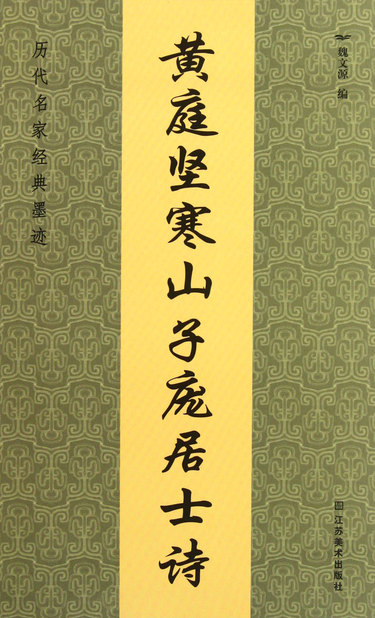 魏文源 编
黄庭坚寒山子庞居士诗
历代名家经典墨迹
江苏美术出版社